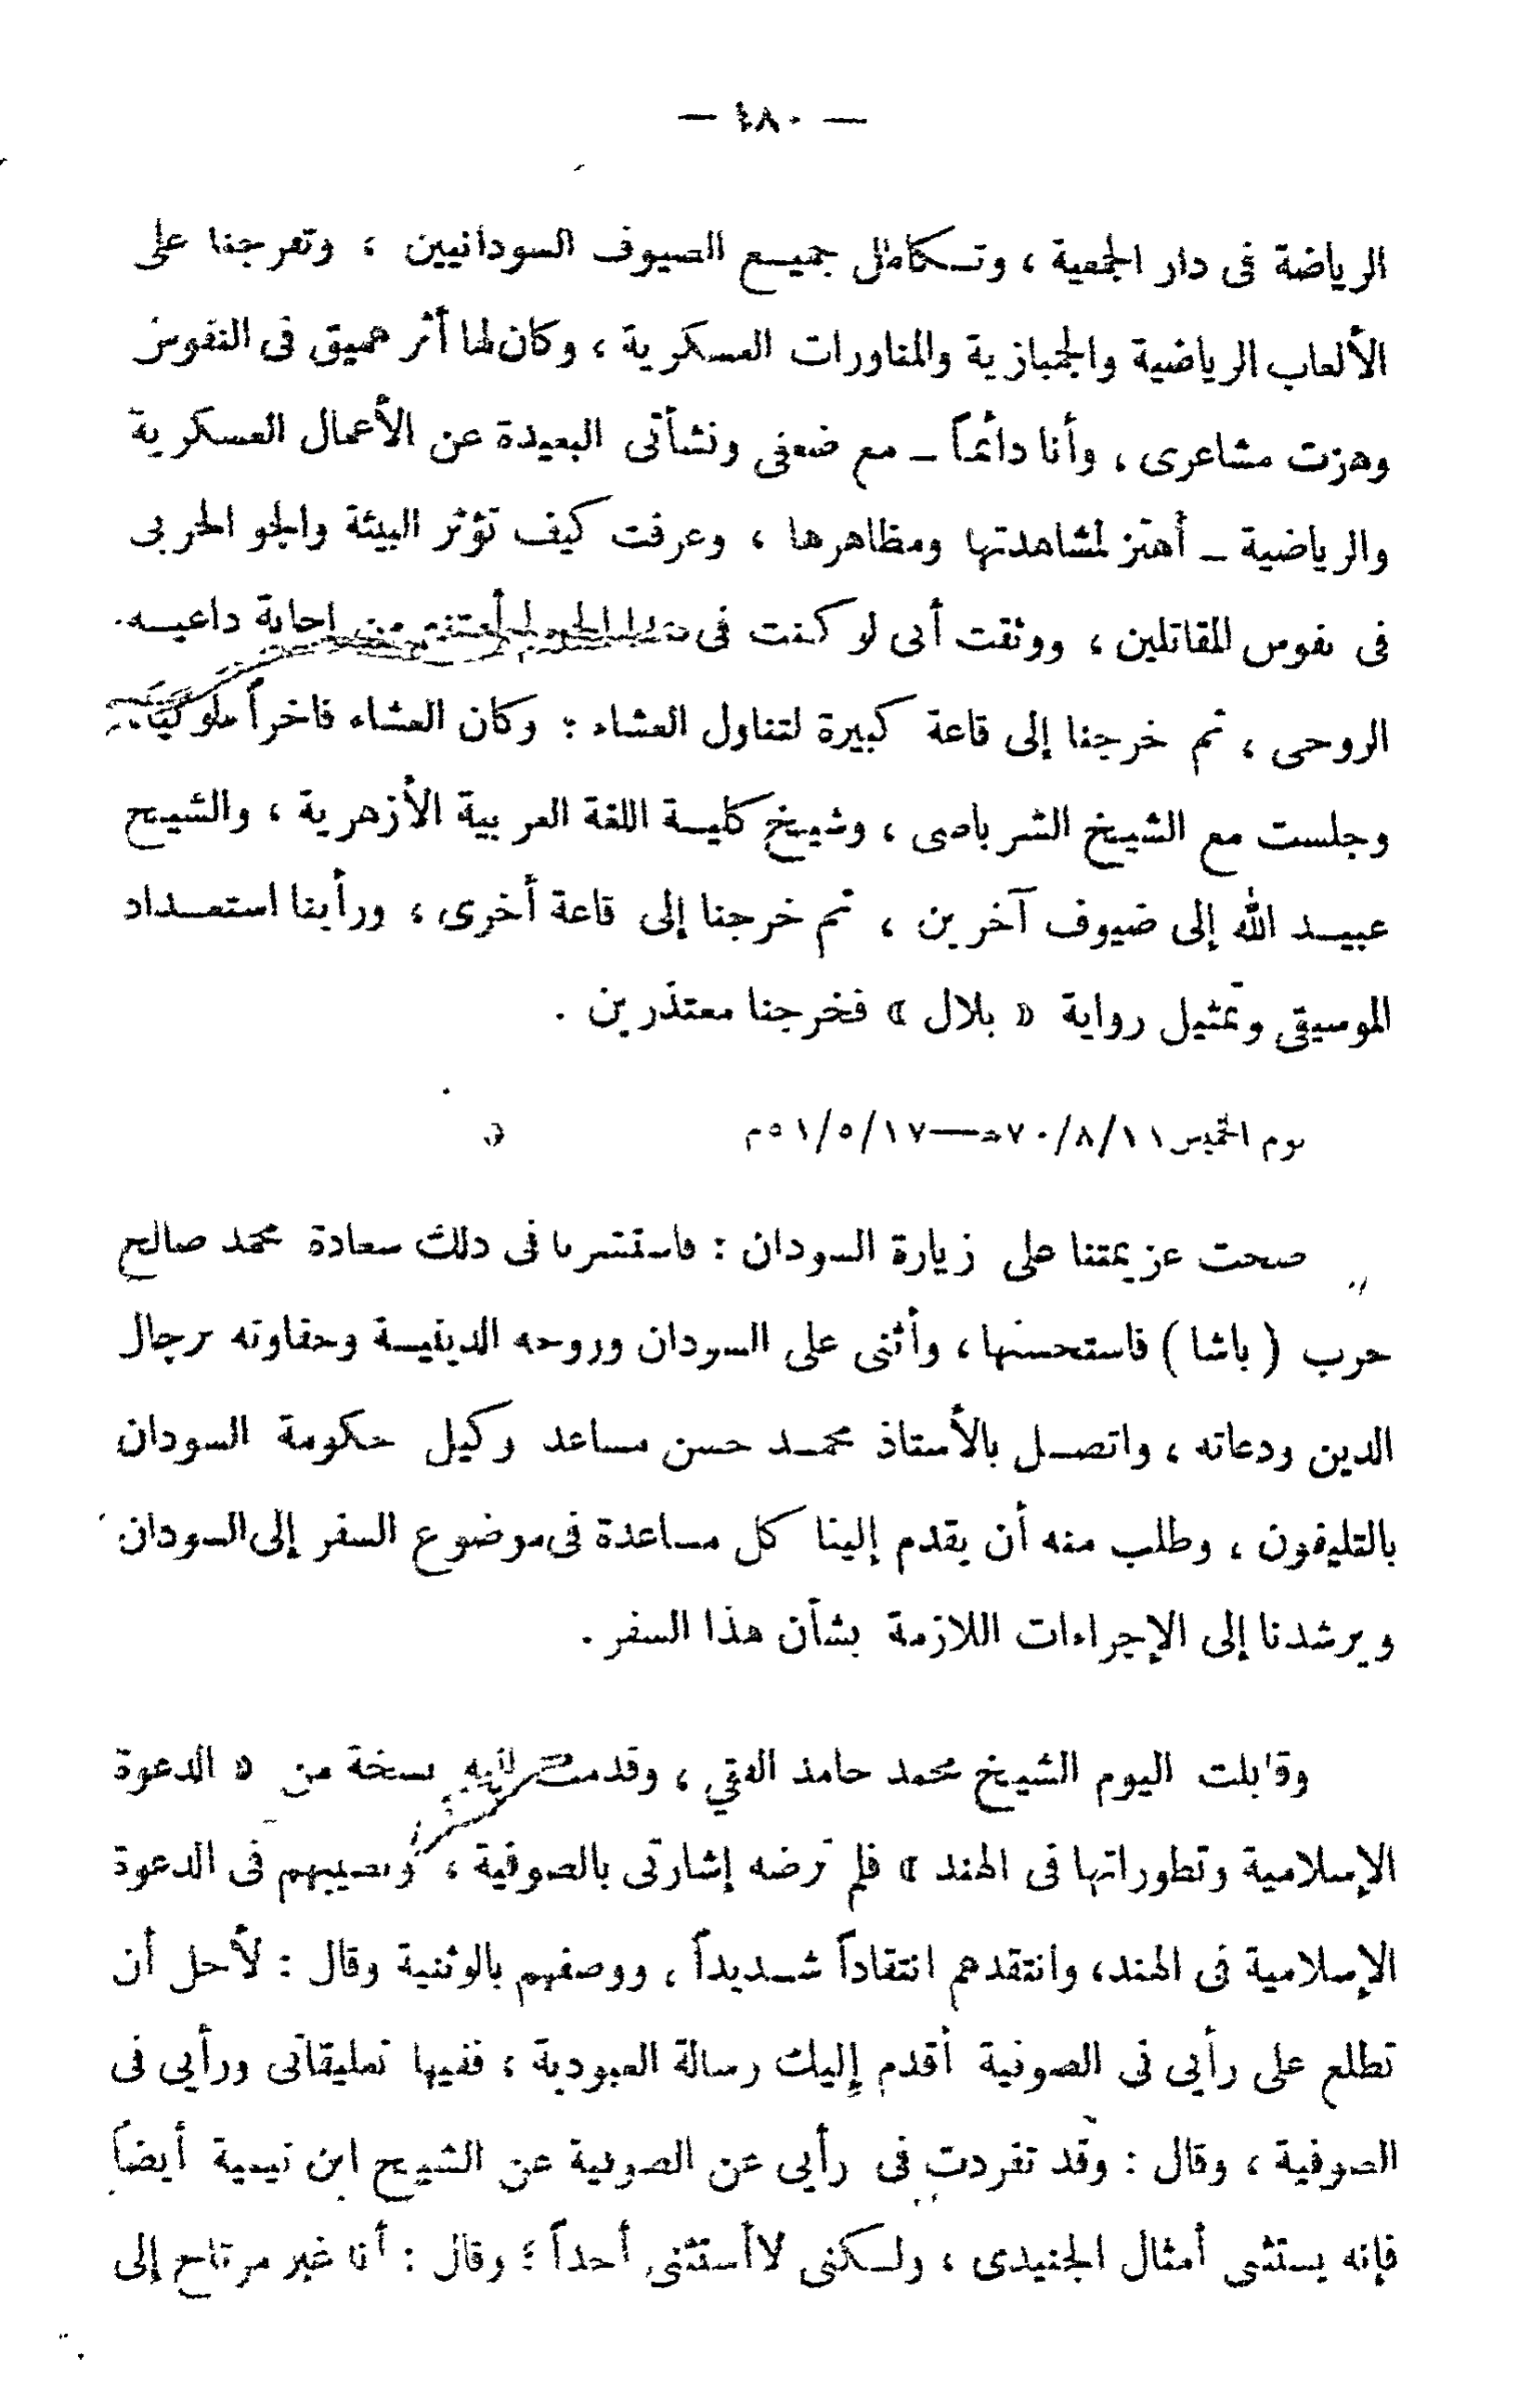 — ٤٨٠ —
الرياضة فى دار الجمعية ، وتكامل جميع الضيوف السودانيين ، وتفرجنا على
الألعاب الرياضية والجمبازية والمناورات العسكرية ، وكان لها أثر عميق فى النفوس
وهزت مشاعرى ، وأنا دائماً ــ مع ضعفى ونشأتى البعيدة عن الأعمال العسكرية
والرياضية ــ أهتز لمشاهدتها ومظاهرها ، وعرفت كيف تؤثر البيئة والجو الحربى
فى نفوس المقاتلين ، ووثقت أنى لو كنت فى لم أمتنع من إجابة داعيه
الروحى ، ثم خرجنا إلى قاعة كبيرة لتناول العشاء : وكان العشاء فاخراً ملوكياً .
وجلست مع الشيخ الشرباصى ، وشيخ كلية اللغة العربية الأزهرية ، والشيخ
عبيد الله إلى ضيوف آخرين ، ثم خرجنا إلى قاعة أخرى ، ورأينا استعداد
الموسيقى وتمثيل رواية « بلال » فخرجنا معتذرين .
يوم الخميس ٧٠/٨/١١هـ — ٥١/٥/١٧م
صحت عزيمتنا على زيارة السودان : فاستشرنا فى ذلك سعادة محمد صالح
حرب ( باشا ) فاستحسنها ، وأثنى على السودان وروحه الدينية وحفاوته برجال
الدين ودعاته ، واتصل بالأستاذ محمد حسن مساعد وكيل حكومة السودان
بالتليفون ، وطلب منه أن يقدم إلينا كل مساعدة فى موضوع السفر إلى السودان
ويرشدنا إلى الإجراءات اللازمة بشأن هذا السفر .
وقابلت اليوم الشيخ محمد حامد الفقي ، وقدمت إليه نسخة من « الدعوة
الإسلامية وتطوراتها فى الهند » فلم ترضه إشارتى بالصوفية ، ونصيبهم فى الدعوة
الإسلامية فى الهند، وانتقدهم انتقاداً شديداً ، ووصفهم بالوثنية وقال : لأجل أن
تطلع على رأيى فى الصوفية أقدم إليك رسالة العبودية ، ففيها تعليقاتى ورأيى فى
الصوفية ، وقال : وقد تفردت فى رأيى عن الصوفية عن الشيخ ابن تيمية أيضاً
فإنه يستثنى أمثال الجنيدى ، ولكنى لا أستثنى أحداً ؛ وقال : أنا غير مرتاح إلى